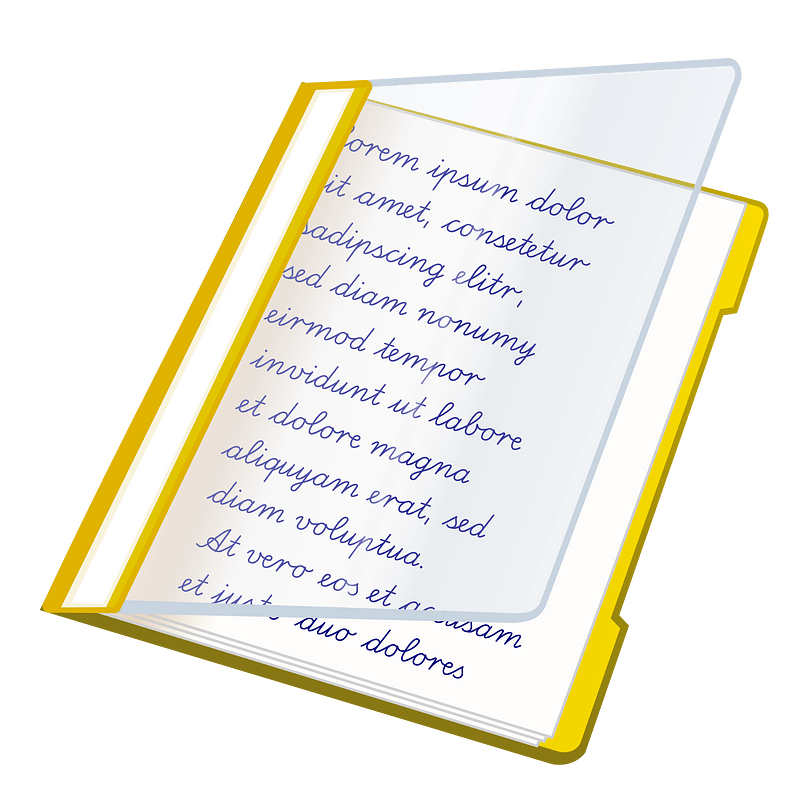 lorem ipsum dolor
it amet, consetetur
sadipscing elitr,
sed diam nonumy
eirmod tempor
invidunt ut labore
et dolore magna
aliquyam erat, sed
diam voluptua.
At vero eos et accusam
et justo duo dolores